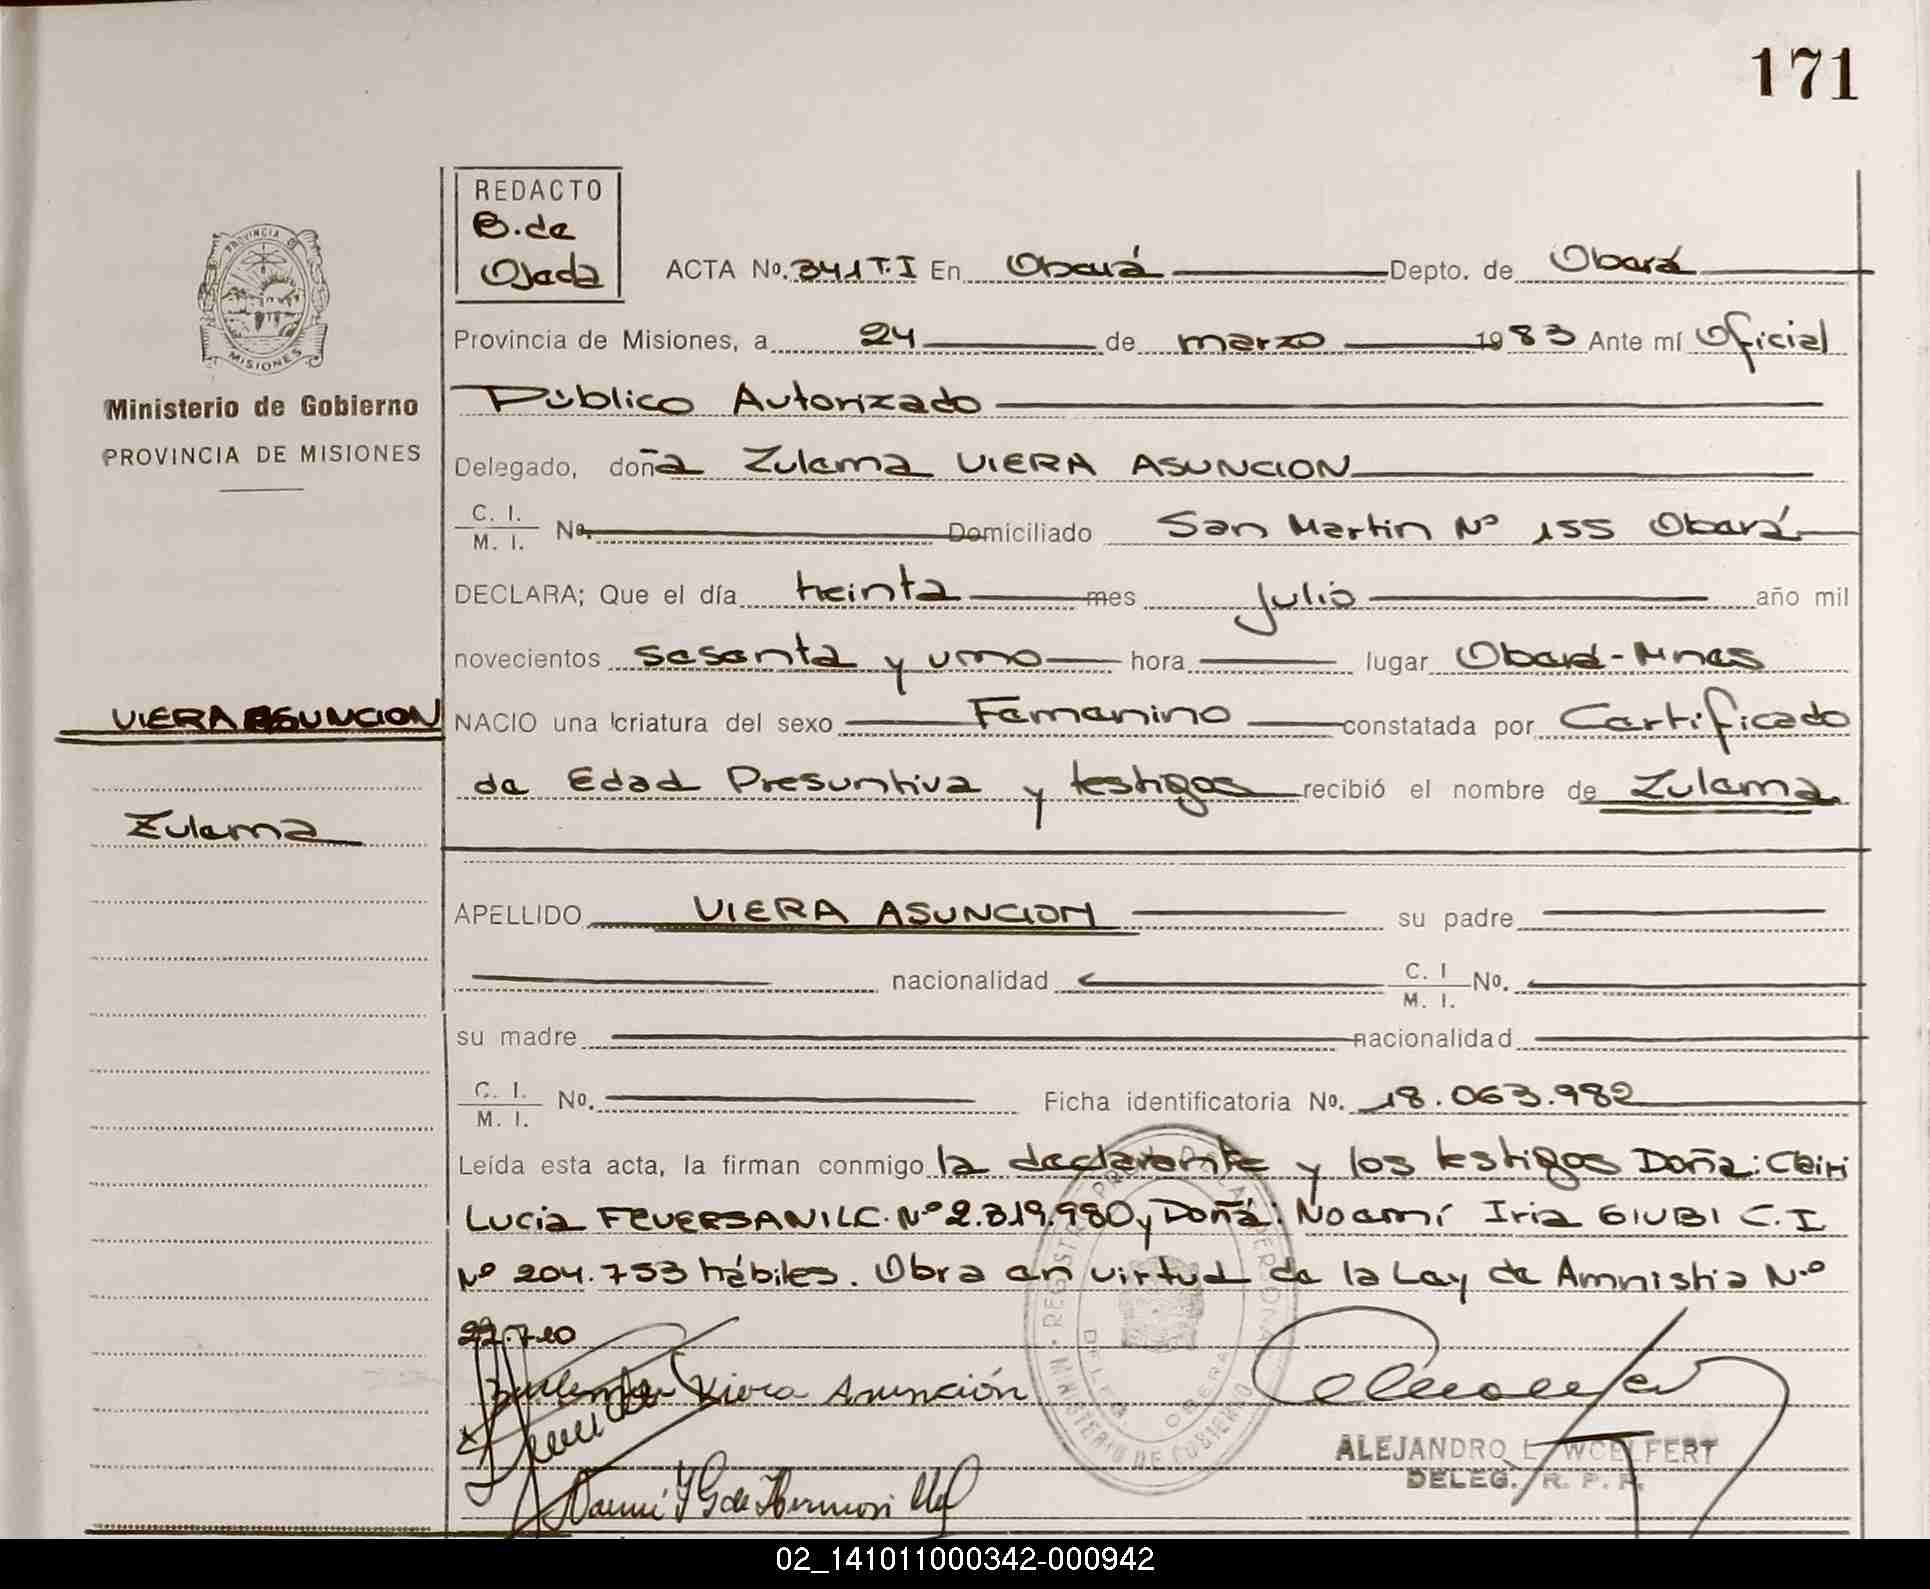 171
REDACTO
B. de
Ojeda
PROVINCIA DE
MISIONES
ACTA No. 341 T.I En Oberá Depto. de Oberá
Provincia de Misiones, a 24 de marzo 1983 Ante mí Oficial
Ministerio de Gobierno
Público Autorizado
PROVINCIA DE MISIONES
Delegado, doña Zulema VIERA ASUNCION
C. I.
M. I. No. Domiciliado San Martin Nº 155 Oberá
DECLARA; Que el día treinta mes julio año mil
novecientos sesenta y uno hora lugar Oberá-Mnes
VIERA ASUNCION
NACIO una criatura del sexo Femenino constatada por Certificado
de Edad Presuntiva y testigos recibió el nombre de Zulema
Zulema
APELLIDO VIERA ASUNCION su padre
nacionalidad C. I M. I. No.
su madre nacionalidad
C. I. M. I. No. Ficha identificatoria No. 18.063.982
Leída esta acta, la firman conmigo la declarante y los testigos Doña: Clairi
Lucia L.C. Nº 2.319.980 y Doña: Noemí Iria GIUBI C.I
Nº 204.753 hábiles. Obra en virtud de la Ley de Amnistia Nº
22.710
Zulema Viera Asunción
REGISTRO PROVINCIAL DE LAS PERSONAS
MINISTERIO DE GOBIERNO
DELEG. OBERA
ALEJANDRO L. WOELFERT
DELEG. R. P. P.
02_141011000342-000942